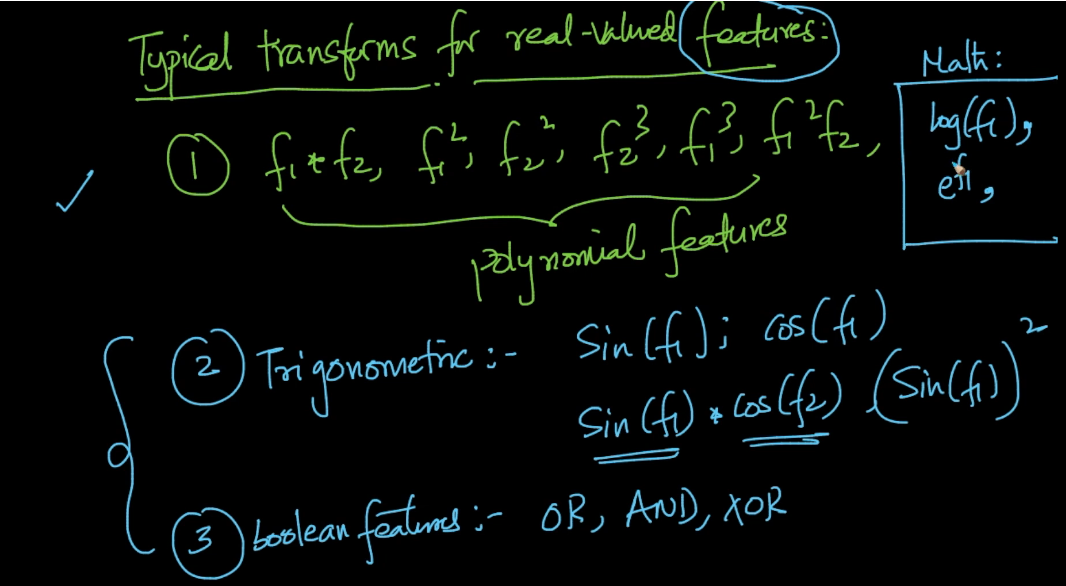 Typical transforms for real-valued features:
Math:
① f₁ * f₂, f₁², f₂², f₂³, f₁³, f₁²f₂,
log(f₁),
e^f₁,
polynomial features
② Trigonometric :- Sin(f₁); Cos(f₁)
Sin(f₁) * Cos(f₂) (Sin(f₁))²
③ boolean features :- OR, AND, XOR